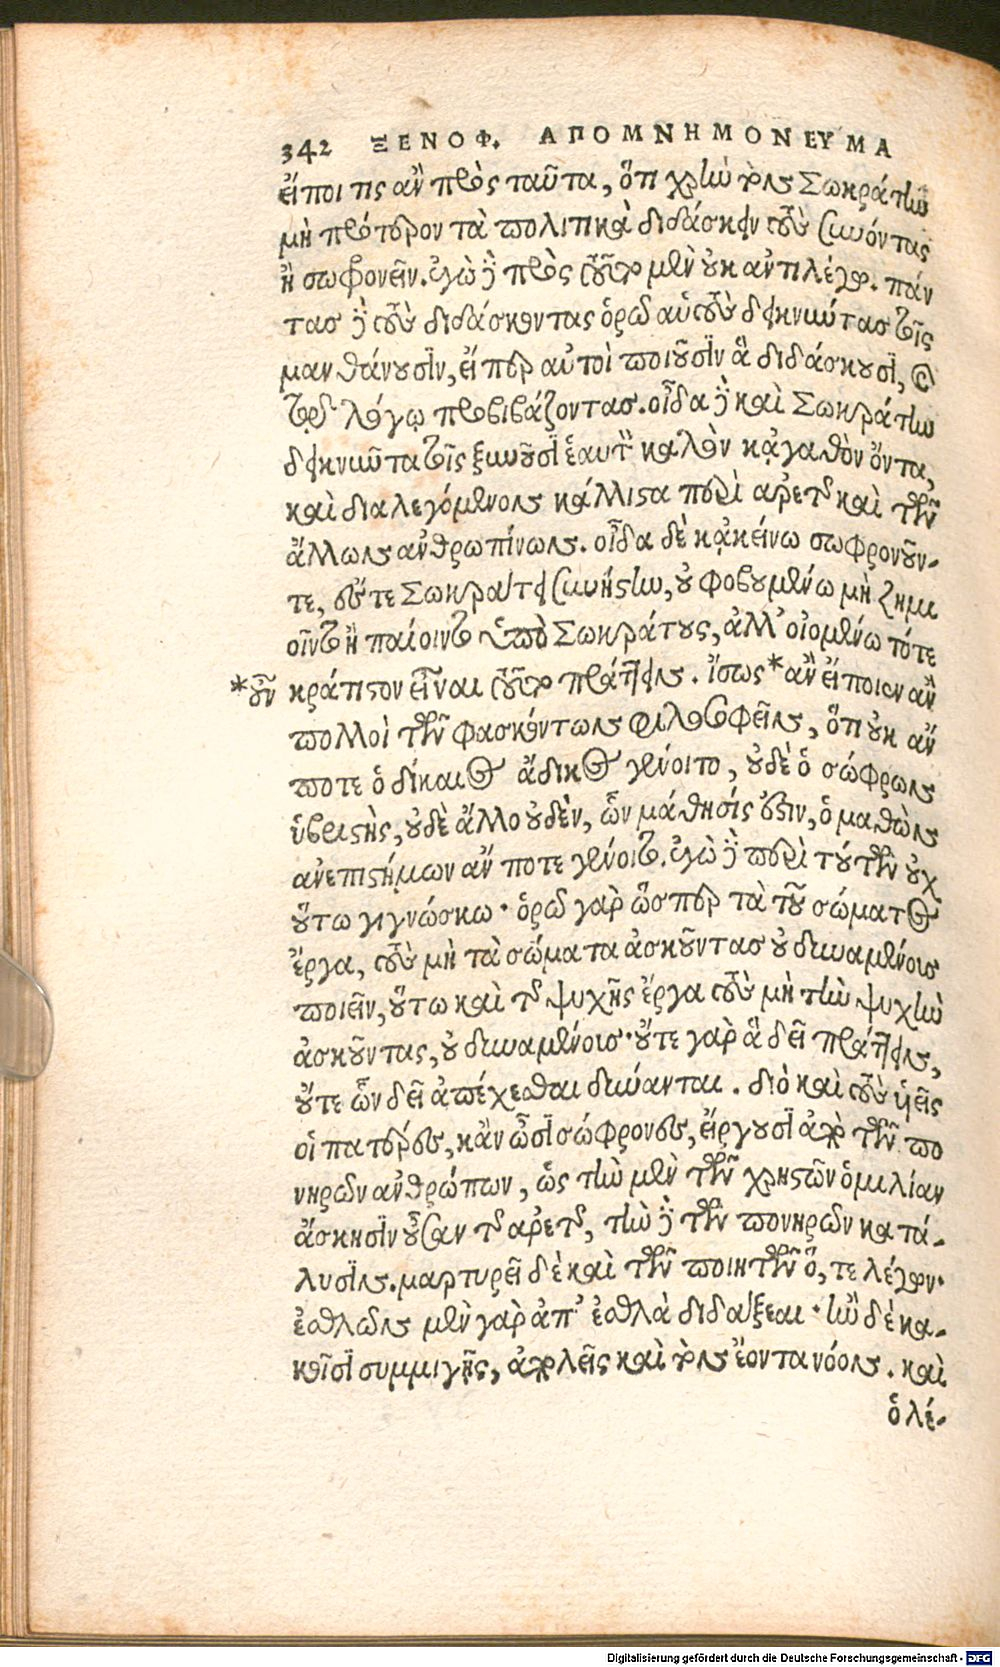 342 ΞΕΝΟΦ. ΑΠΟΜΝΗΜΟΝΕΥΜΑ
εἴποι τις ἂν πρὸς ταῦτα, ὅτι χρῆν τὸν Σωκράτην
μὴ πρότερον τὰ πολιτικὰ διδάσκειν τοὺς συνόντας
ἢ σωφρονεῖν. ἐγὼ δὲ πρὸς τοῦτο μὲν οὐκ ἀντιλέγω. πάν
τας δὲ τοὺς διδάσκοντας ὁρῶ αὑτοὺς δεικνύντας τοῖς
μανθάνουσιν, εἴπερ αὐτοὶ ποιοῦσιν ἃ διδάσκουσι, καὶ
τῷ λόγῳ προβιβάζοντας. οἶδα δὲ καὶ Σωκράτην
δεικνῦντα τοῖς ξυνοῦσιν ἑαυτὸν καλὸν κἀγαθὸν ὄντα,
καὶ διαλεγόμενον κάλλιστα περὶ ἀρετῆς καὶ τῶν
ἄλλων ἀνθρωπίνων. οἶδα δὲ κἀκείνω σωφρονοῦν-
τε, ἔστε Σωκράτει συνήστην, οὐ φοβουμένω μὴ ζημι
οῖντο ἢ παίοιντο ὑπὸ Σωκράτους, ἀλλ' οἰομένω τότε
*οὖν κράτιστον εἶναι τοῦτο πράττειν. ἴσως *ἂν εἴποιεν ἂν
πολλοὶ τῶν φασκόντων φιλοσοφεῖν, ὅτι οὐκ ἄν
ποτε ὁ δίκαιος ἄδικος γένοιτο, οὐδὲ ὁ σώφρων
ὑβριστὴς, οὐδὲ ἄλλο οὐδὲν, ὧν μάθησίς ἐστιν, ὁ μαθὼν
ἀνεπιστήμων ἄν ποτε γένοιτο. ἐγὼ δὲ περὶ τούτων οὐχ
οὕτω γιγνώσκω· ὁρῶ γὰρ ὥσπερ τὰ τοῦ σώματος
ἔργα, τοὺς μὴ τὰ σώματα ἀσκοῦντας οὐ δυναμένους
ποιεῖν, οὕτω καὶ τῆς ψυχῆς ἔργα τοὺς μὴ τὴν ψυχὴν
ἀσκοῦντας, οὐ δυναμένους· οὔτε γὰρ ἃ δεῖ πράττειν,
οὔτε ὧν δεῖ ἀπέχεσθαι δύνανται. διὸ καὶ τοὺς υἱεῖς
οἱ πατέρες, κἂν ὦσι σώφρονες, εἴργουσι ἀπὸ τῶν πο
νηρῶν ἀνθρώπων, ὡς τὴν μὲν τῶν χρηστῶν ὁμιλίαν
ἄσκησιν οὖσαν τῆς ἀρετῆς, τὴν δὲ τῶν πονηρῶν κατά-
λυσιν. μαρτυρεῖ δὲ καὶ τῶν ποιητῶν ὅ, τε λέγων·
ἐσθλῶν μὲν γὰρ ἀπ' ἐσθλὰ διδάξεαι· ἢν δὲ κα-
κοῖσι συμμιγῇς, ἀπολεῖς καὶ τὸν ἐόντα νόον. καὶ
ὁ λέ-
Digitalisierung gefördert durch die Deutsche Forschungsgemeinschaft - DFG